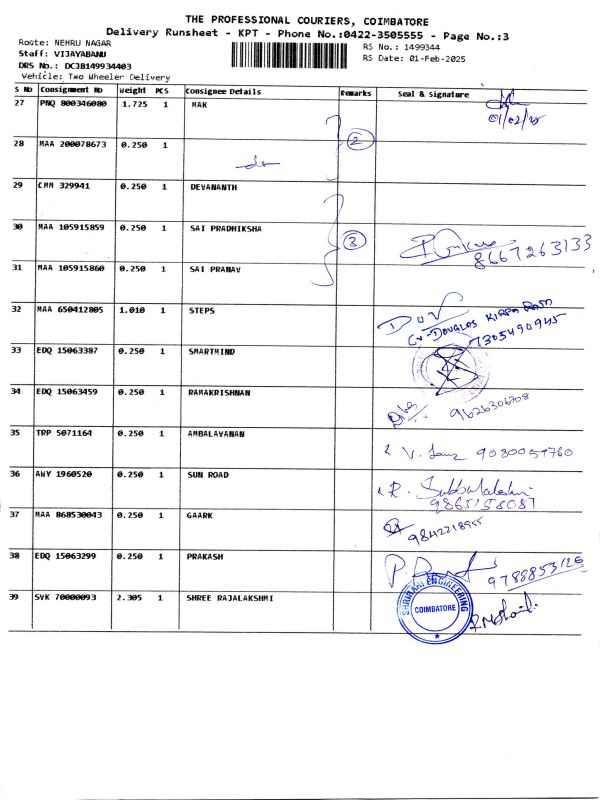 THE PROFESSIONAL COURIERS, COIMBATORE
Delivery Runsheet - KPT - Phone No.:0422-3505555 - Page No.:3
Route: NEHRU NAGAR
RS No.: 1499344
Staff: VIJAYABANU
RS Date: 01-Feb-2025
DRS No.: DCJB149934403
Vehicle: Two Wheeler Delivery
S No Consignment No Weight PCS Consignee Details Remarks Seal & Signature
27 PNQ 800346080 1.725 1 MAK
01/02/25
28 MAA 200078673 0.250 1 2
29 CMM 329941 0.250 1 DEVANANTH
30 MAA 105915859 0.250 1 SAI PRADHIKSHA 3
8667263133
31 MAA 105915860 0.250 1 SAI PRANAV
32 MAA 650412805 1.010 1 STEPS
DOUGLAS
7305490945
33 EDQ 15063387 0.250 1 SMARTMIND
34 EDQ 15063459 0.250 1 RAMAKRISHNAN
9626306708
35 TRP 5071164 0.250 1 AMBALAVANAN
36 ANY 1960520 0.250 1 SUN ROAD
R. Subbulakshmi
37 MAA 868530043 0.250 1 GAARK
9842218955
38 EDQ 15063299 0.250 1 PRAKASH
9788853126
39 SVK 70000093 2.305 1 SHREE RAJALAKSHMI
ENGINEERING
COIMBATORE